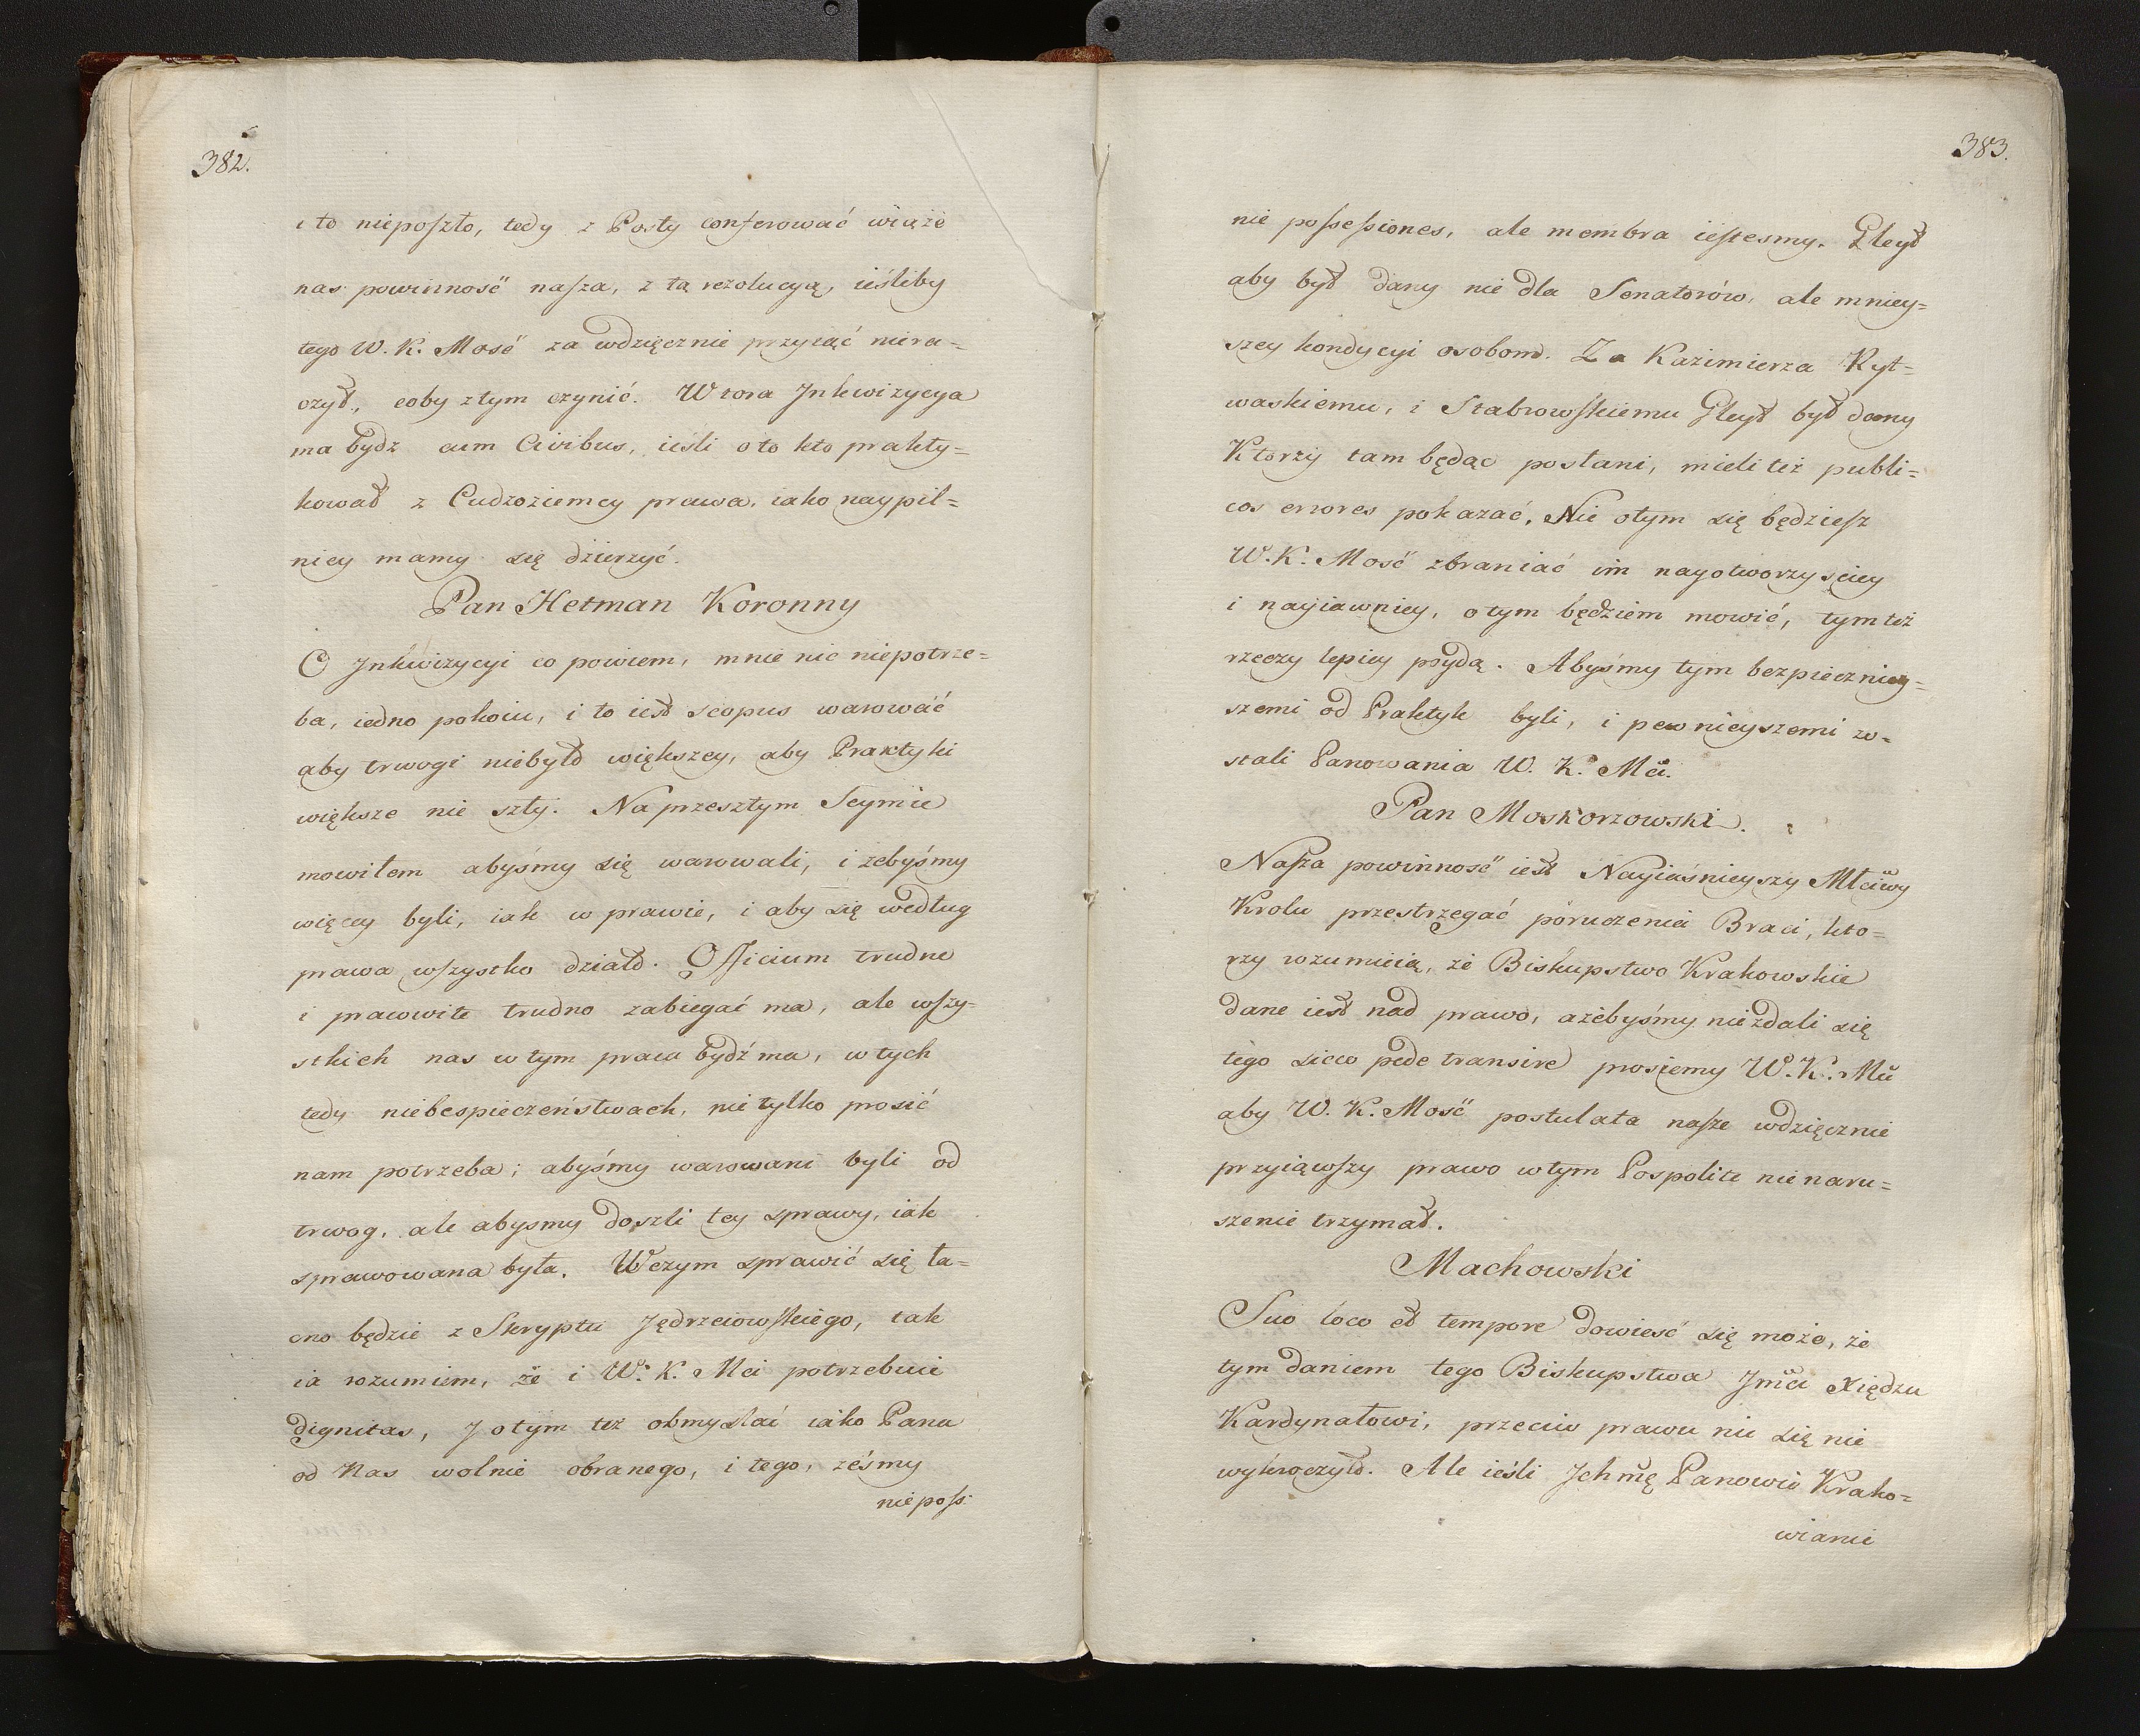 382.
i to nieposzło, tedy z Posły conferować wiąże
nas powinność nasza, z tą rezolucyą, ieśliby
tego W. K. Mość za wdzięcznie przyiąć niera=
czył, coby z tym czynić. Wtora Jnkwizycya
ma bydz cum Civibus, ieśli o to kto prakty=
kował z Cudzoziemcy prawa, iako naypil=
niey mamy się dzierzyć.
Pan Hetman Koronny
O Jnkwizycyi co powiem, mnie nic niepotrze=
ba, iedno pokoiu, i to iest scopus warować
aby trwogi niebyło większey, aby Praktyki
większe nie szły. Na przeszłym Seymie
mowiłem abyśmy się warowali, i żebyśmy
więcey byli, iak w prawie, i aby się według
prawa wszystko działo. Officium trudne
i pracowite trudno zabiegać ma, ale wszy=
stkich nas w tym praca bydź ma, w tych
tedy niebespieczeństwach, nie tylko prosić
nam potrzeba; abyśmy warowani byli od
trwog, ale abysmy doszli tey sprawy, iak
sprawowana była. Wczym sprawić się ła=
cno będzie z Skryptu Jędrzeiowskiego, tak
ia rozumiem, że i W. K. Mci potrzebuie
dignitas, J o tym też obmyslać iako Pana
od Nas wolnie obranego, i tego, żeśmy
nie poss:
383.
nie possessiones, ale membra iestesmy. Gleyt
aby był dany nie dla Senatorów, ale mniey=
szey kondycyi osobom. Za Kazimierza Ryt=
waskiemu, i Stabrowskiemu Gleyt był dany
Ktorzy tam będąc posłani, mieli też publi=
cos errores pokazać. Nie o tym się będziesz
W. K. Mość zbraniać im nayotworzyściey
i nayiawniey, o tym będziem mowić, tym też
rzeczy lepiey póydą. Abyśmy tym bezpieczniey=
szemi od Praktyk byli, i pewnieyszemi zo=
stali Panowania W. K. Mci.
Pan Moskorzowski.
Nasza powinność iest Nayiaśnieyszy Młciwy
Krolu przestrzegać poruczenia Braci, kto=
rzy rozumieią, że Biskupstwo Krakowskie
dane iest nad prawo, ażebyśmy nie zdali się
tego sicco pede transire prosiemy W. K. Mci
aby W. K. Mość postulata nasze wdzięcznie
przyiąwszy prawo w tym Pospolite nie naru=
szenie trzymał.
Machowski
Suo loco et tempore dowieść się może, że
tym daniem tego Biskupstwa Jmci Xiędzu
Kardynałowi, przeciw prawu nic się nie
wykroczyło. Ale ieśli Jchmę Panowie Krako=
wianie